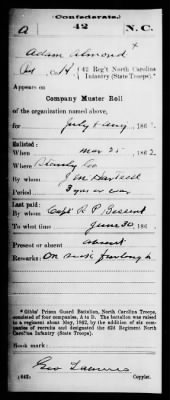 (Confederate.)
A 42 N.C.
Adam Almond
Pvt, Co. H, 42 Reg't North Carolina
Infantry (State Troops).*
Appears on
Company Muster Roll
of the organization named above,
for July & Aug, 186
Enlisted:
When Mar 25, 1862.
Where Stanly Co
By whom J M Hartsell
Period 3 yrs or war
Last paid:
By whom Capt R P Bessent
To what time June 30, 186
Present or absent absent
Remarks: On sick furlough
*Gibbs' Prison Guard Battalion, North Carolina Troops,
consisted of four companies, A to D. The battalion was raised
to a regiment about May, 1862, by the addition of six companies
of recruits and designated the 42d Regiment North Carolina
Infantry (State Troops).
Book mark:
Geo
(642) Copyist.